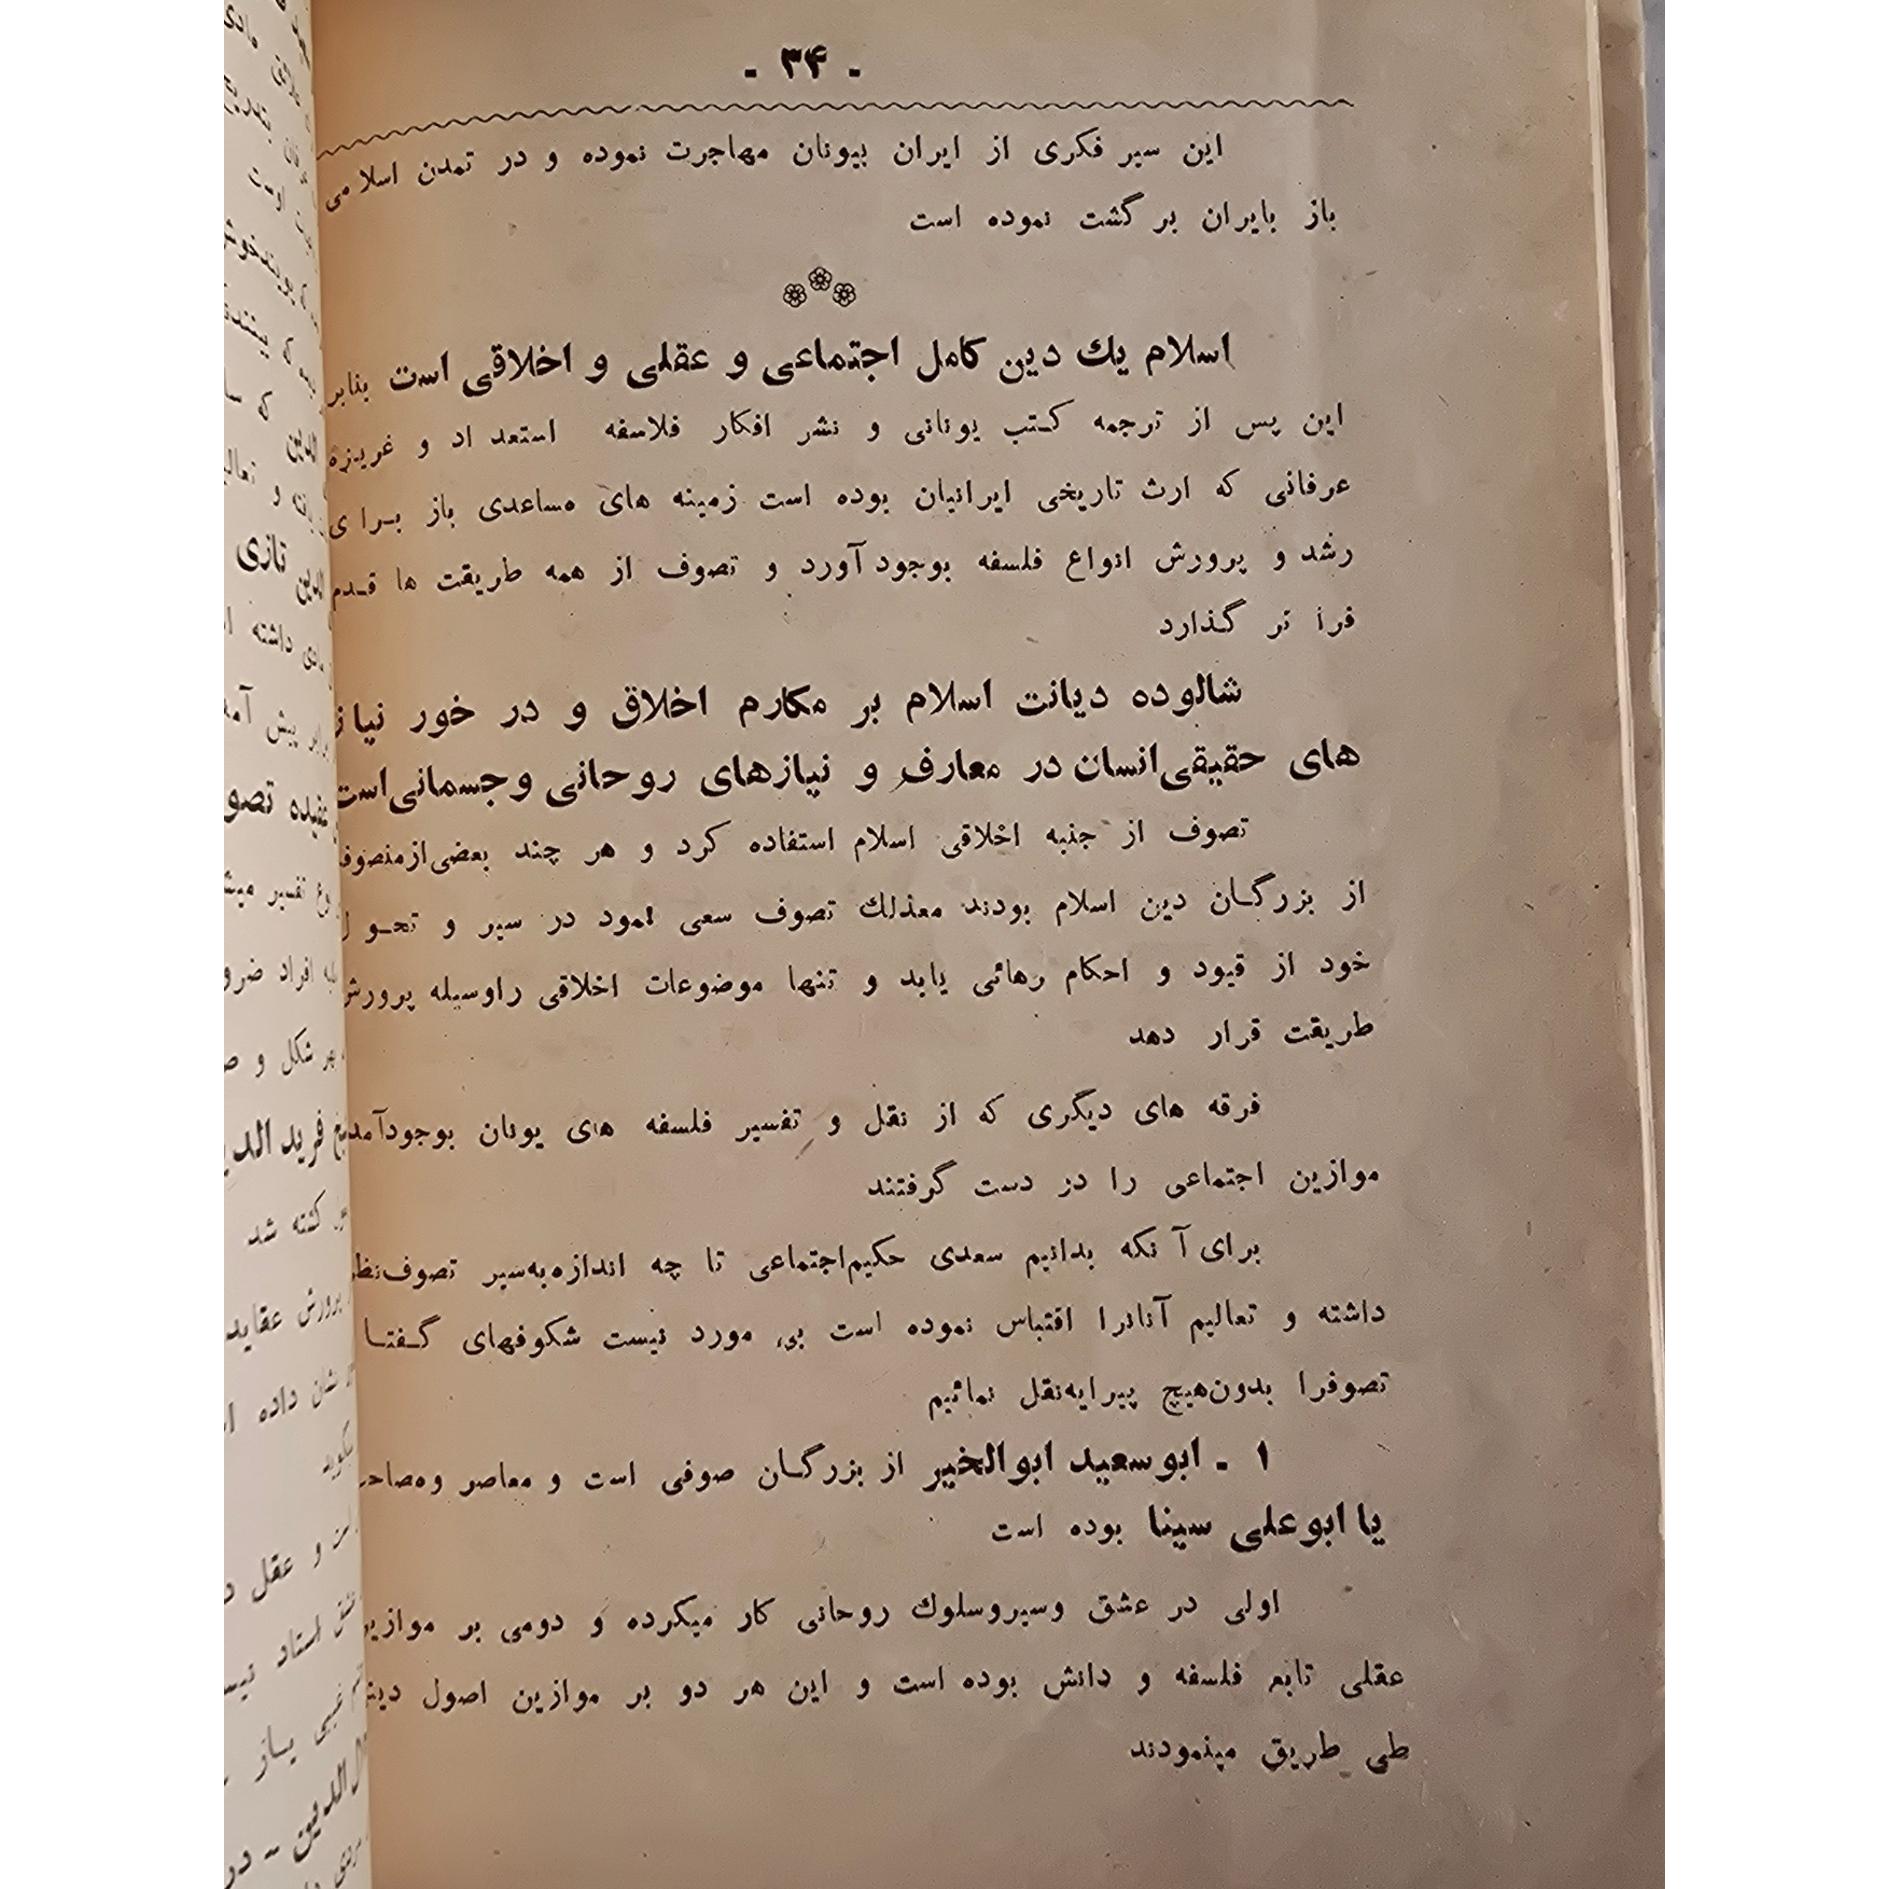 - ۳۴ -
این سیر فکری از ایران بیونان مهاجرت نموده و در تمدن اسلامی
باز بایران برگشت نموده است
اسلام یك دین کامل اجتماعی و عقلی و اخلاقی است بنابر
این پس از ترجمه کتب یونانی و نشر افکار فلاسفه استعداد و غریزه
عرفانی که ارث تاریخی ایرانیان بوده است زمینه های مساعدی باز برای
رشد و پرورش انواع فلسفه بوجود آورد و تصوف از همه طریقت ها قدم
فرا تر گذارد
شالوده دیانت اسلام بر مکارم اخلاق و در خور نیاز
های حقیقی انسان در معارف و نیازهای روحانی و جسمانی است
تصوف از جنبه اخلاقی اسلام استفاده کرد و هر چند بعضی از متصوفه
از بزرگان دین اسلام بودند معذلك تصوف سعی نمود در سیر و تحول
خود از قیود و احکام رهائی یابد و تنها موضوعات اخلاقی راوسیله پرورش
طریقت قرار دهد
فرقه های دیگری که از نقل و تفسیر فلسفه های یونان بوجود آمد
موازین اجتماعی را در دست گرفتند
برای آنکه بدانیم سعدی حکیم اجتماعی تا چه اندازه به سیر تصوف نظر
داشته و تعالیم آنانرا اقتباس نموده است بی مورد نیست شکوفهای گفتا
تصوفرا بدون هیچ پیرایه نقل نمائیم
۱ - ابوسعید ابوالخیر از بزرگان صوفی است و معاصر ومصاحب
یا ابوعلی سینا بوده است
اولی در عشق وسیروسلوك روحانی کار میکرده و دومی بر موازین
عقلی تابع فلسفه و دانش بوده است و این هر دو بر موازین اصول دینی
طی طریق مینمودند